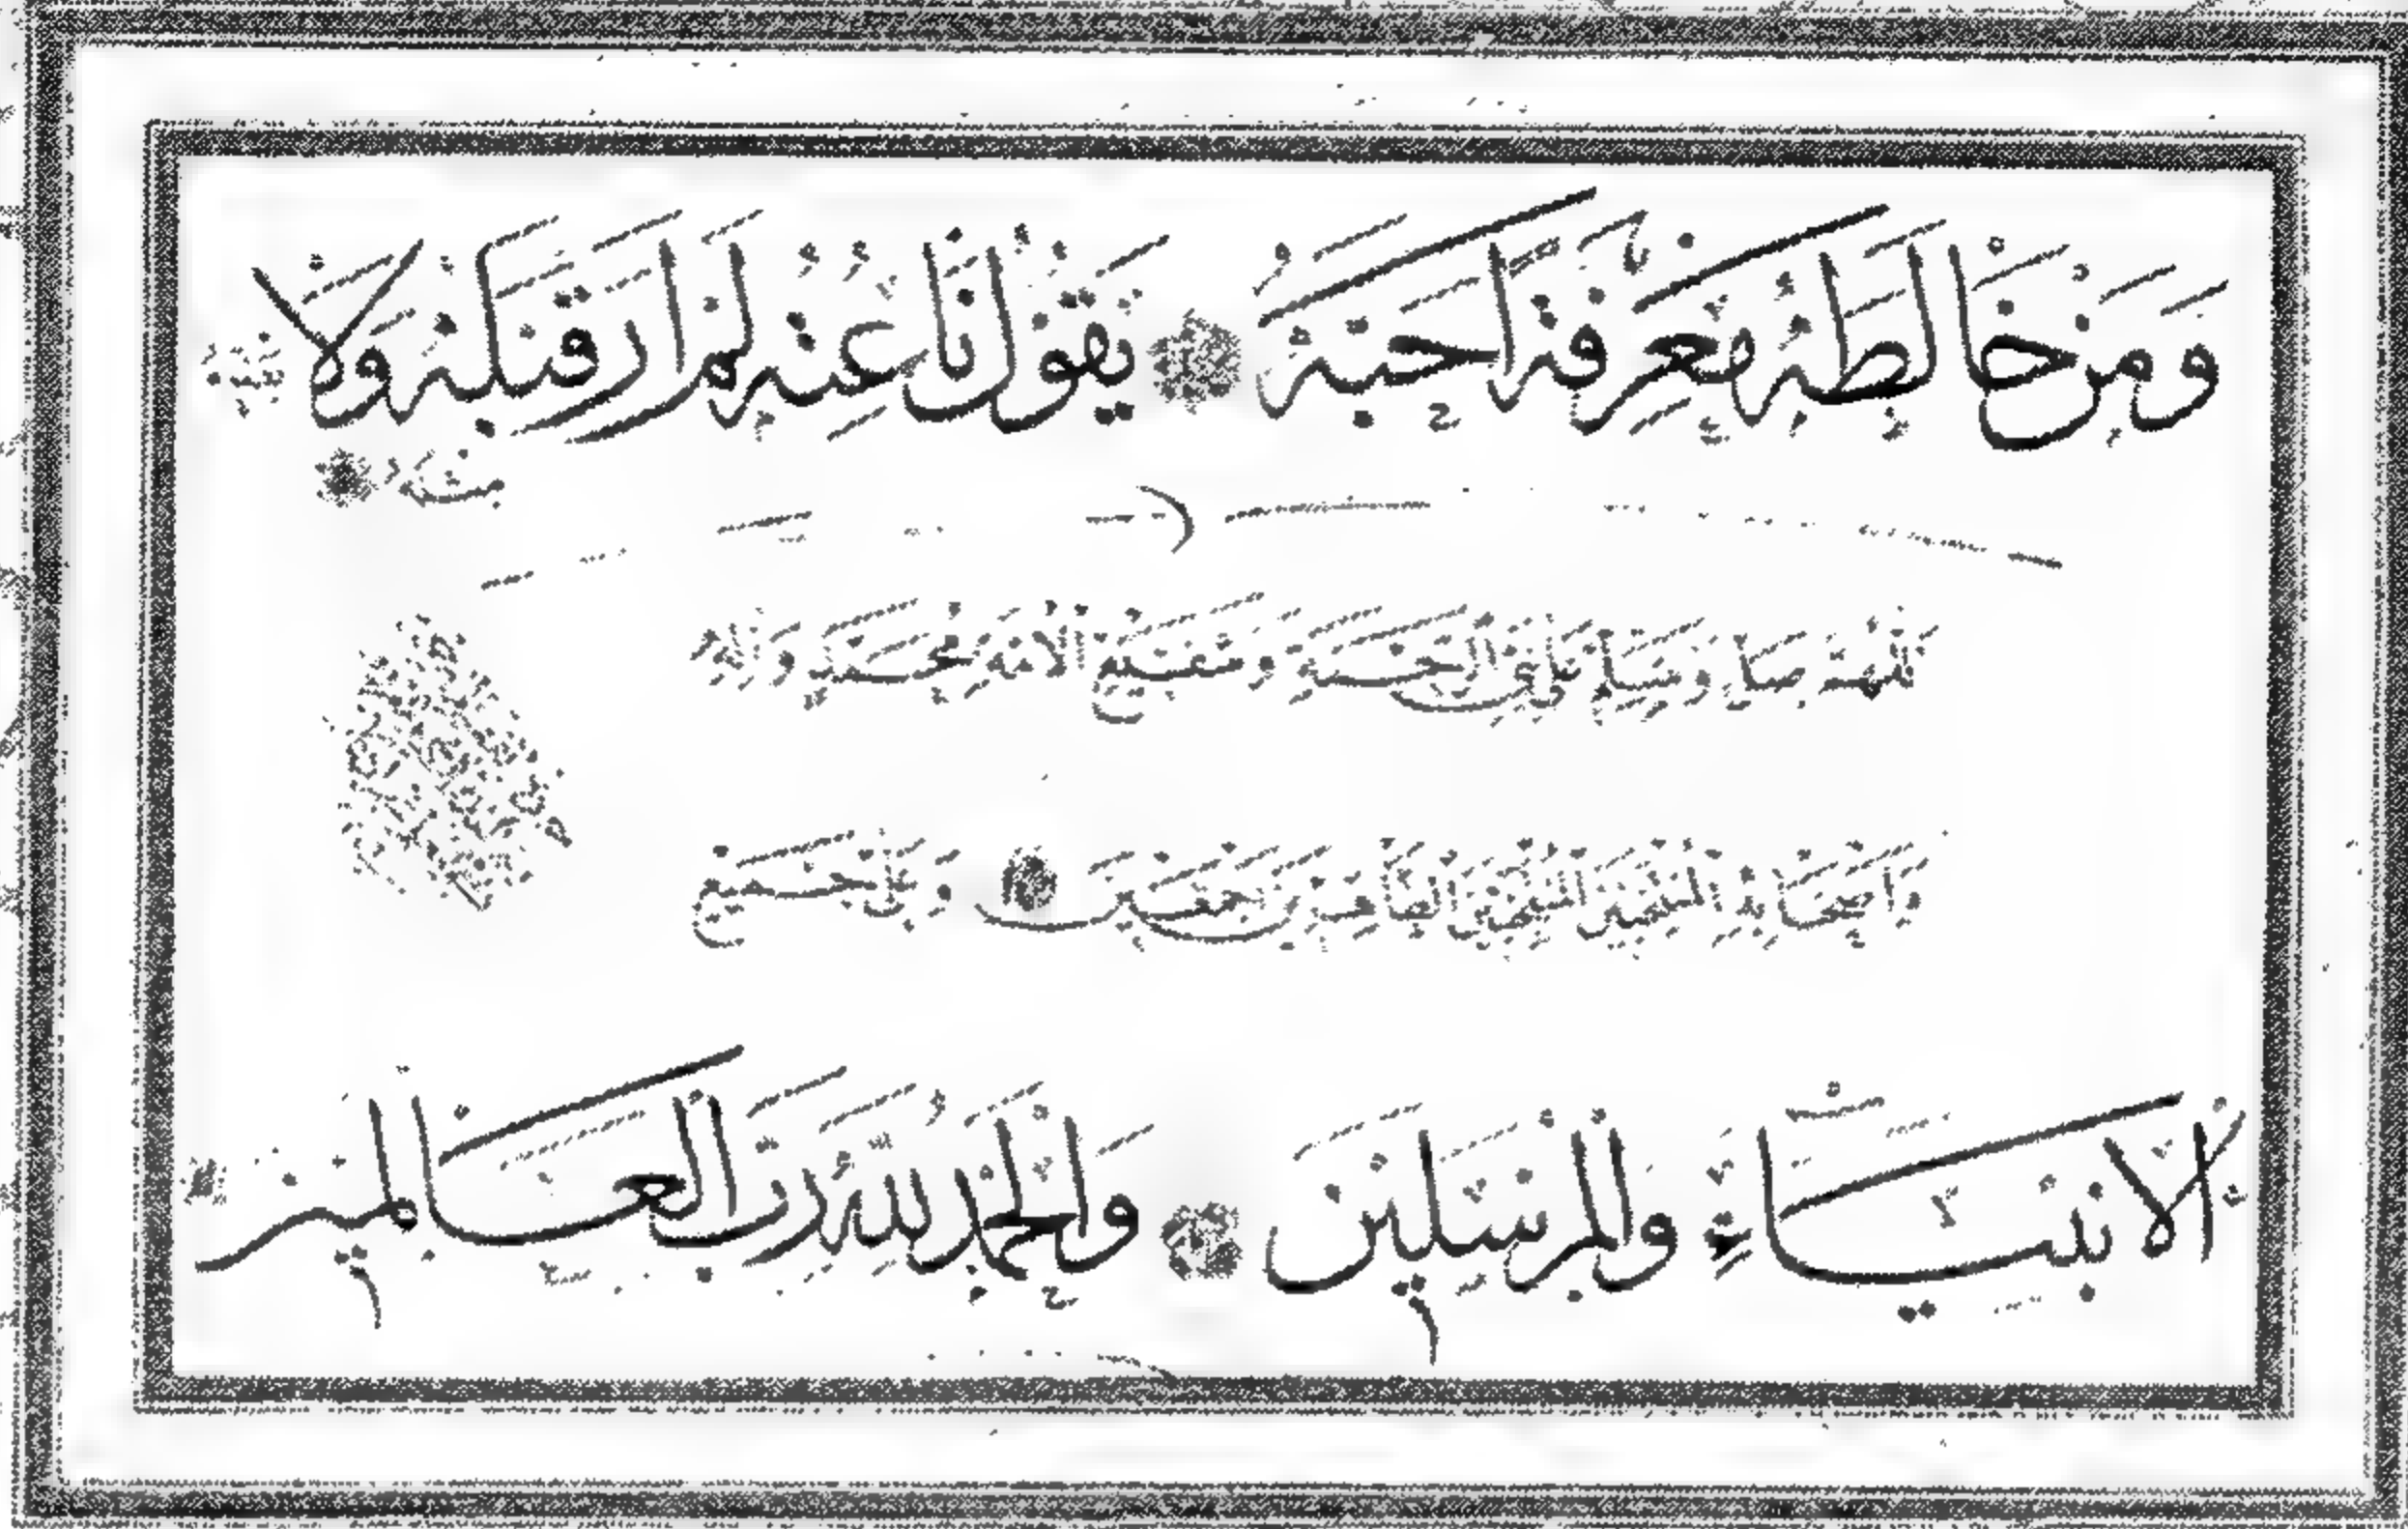 وَمَنْ خَالَطَهُ مَعْرِفَةً اَحَبَّهُ يَقُولُ نَاعِتُهُ لَمْ اَرَ قَبْلَهُ وَلَا
بَعْدَهُ مِثْلَهُ
اَللّٰهُمَّ صَلِّ وَسَلِّمْ عَلٰى نَبِىِّ الرَّحْمَةِ وَشَفِيعِ الْاُمَّةِ مُحَمَّدٍ وَاٰلِهِ
وَاَصْحَابِهِ الطَّاهِرِينَ اَجْمَعِينَ وَعَلٰى جَمِيعِ
الْاَنْبِيَاءِ وَالْمُرْسَلِينَ وَالْحَمْدُ لِلّٰهِ رَبِّ الْعَالَمِينَ